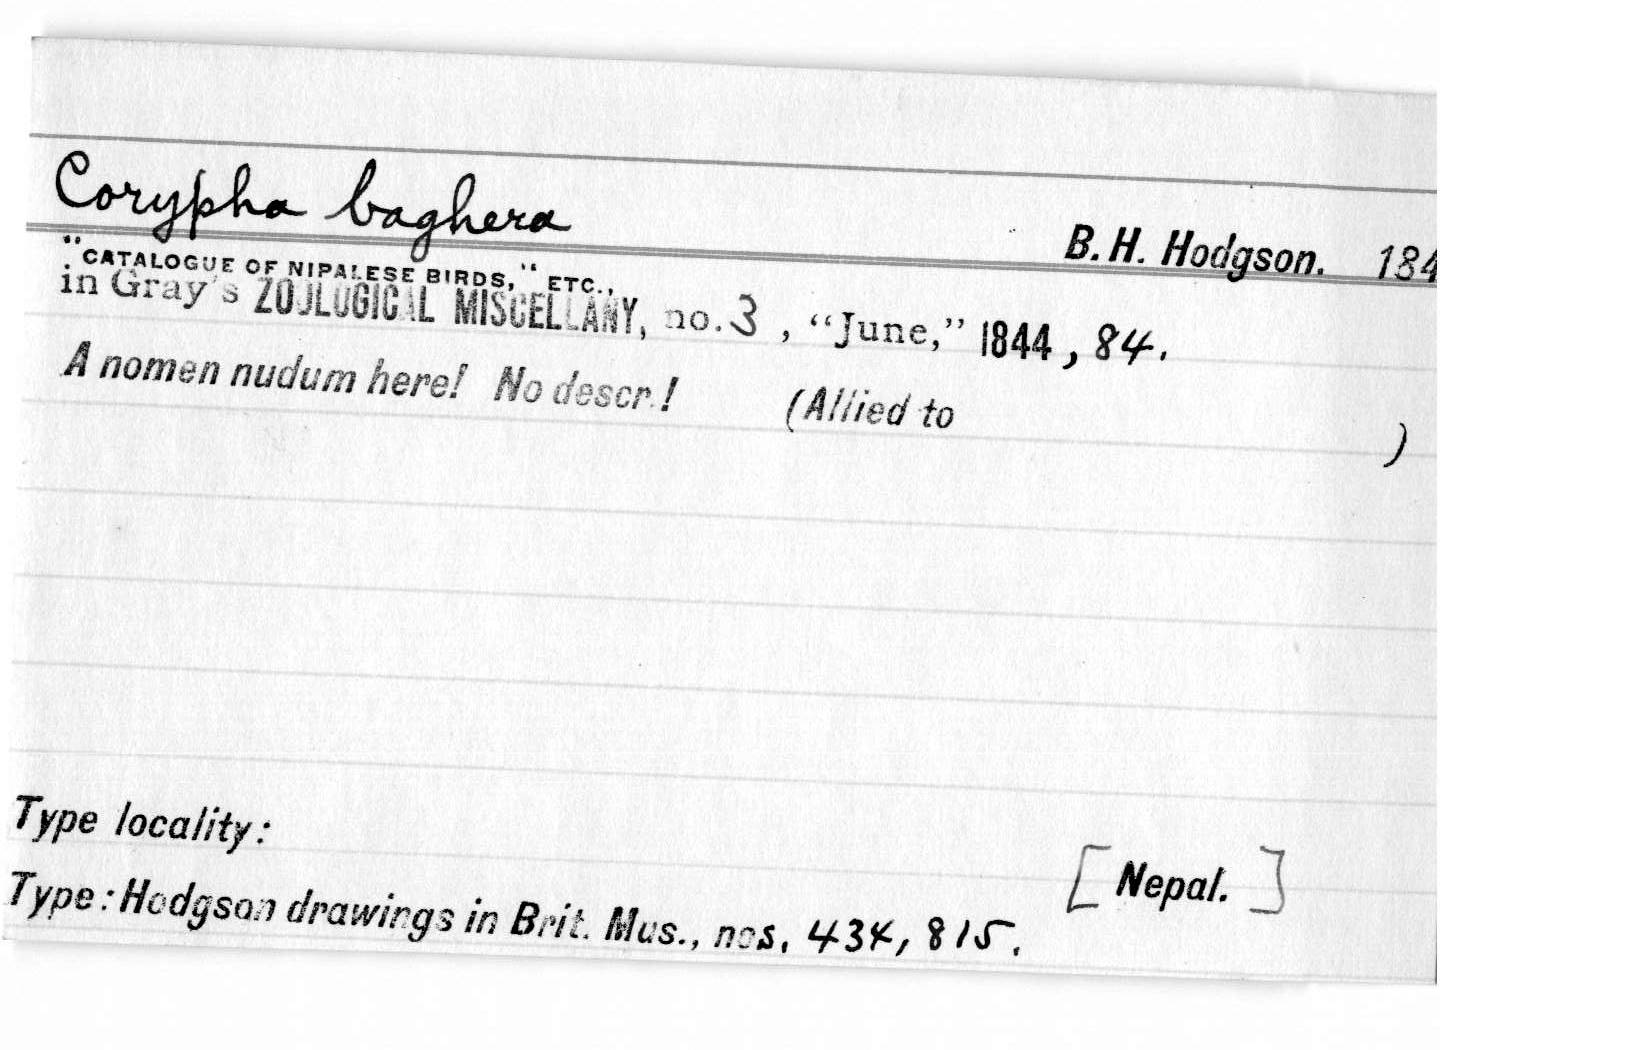 Corypha baghera
B. H. Hodgson. 184
"CATALOGUE OF NIPALESE BIRDS," ETC.,
in Gray's ZOOLOGICAL MISCELLANY, no. 3, “June,” 1844, 84.
A nomen nudum here! No descr.! (Allied to )
Type locality:
[Nepal.]
Type: Hodgson drawings in Brit. Mus., nos. 434, 815.